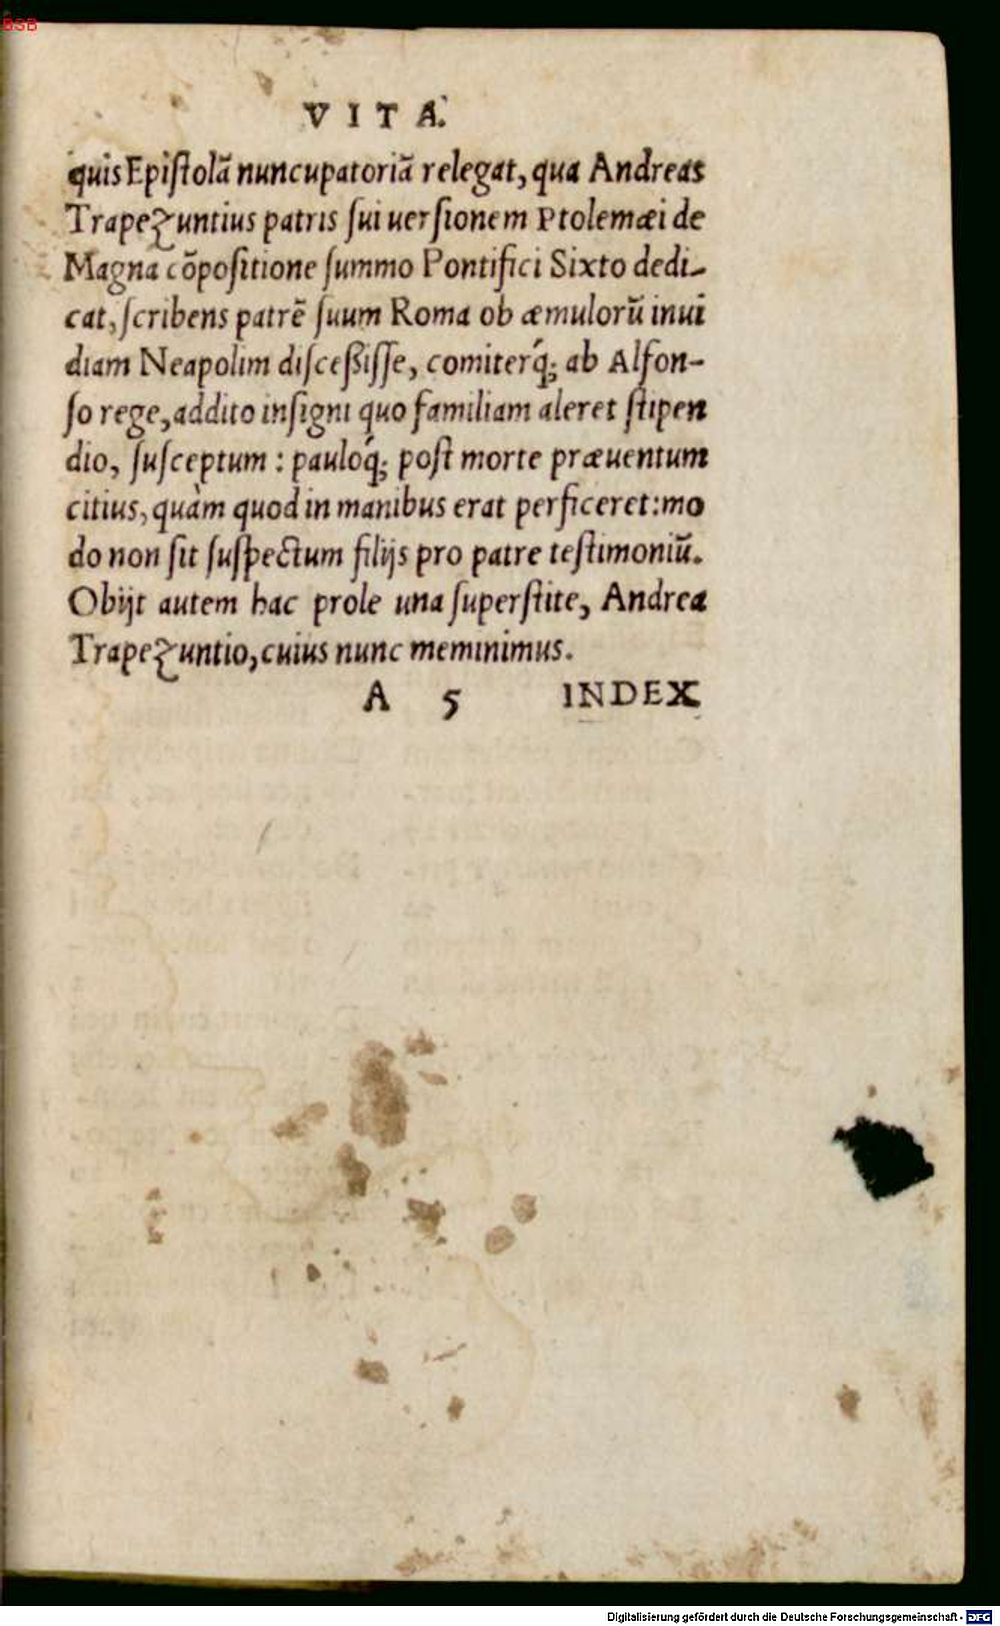 BSB
VITA.
quis Epiſtolã nuncupatoriã relegat, qua Andreas
Trapezuntius patris ſui uerſionem Ptolemæi de
Magna cõpoſitione ſummo Pontifici Sixto dedi-
cat, ſcribens patrẽ ſuum Roma ob æmulorũ inui
diam Neapolim diſceßiſſe, comiterq́; ab Alfon-
ſo rege, addito inſigni quo familiam aleret ſtipen
dio, ſuſceptum : pauloq́; poſt morte præuentum
citius, quàm quod in manibus erat perficeret: mo
do non ſit ſuſpectum filijs pro patre teſtimoniũ.
Obijt autem hac prole una ſuperſtite, Andrea
Trapezuntio, cuius nunc meminimus.
A 5 INDEX
Digitalisierung gefördert durch die Deutsche Forschungsgemeinschaft - DFG